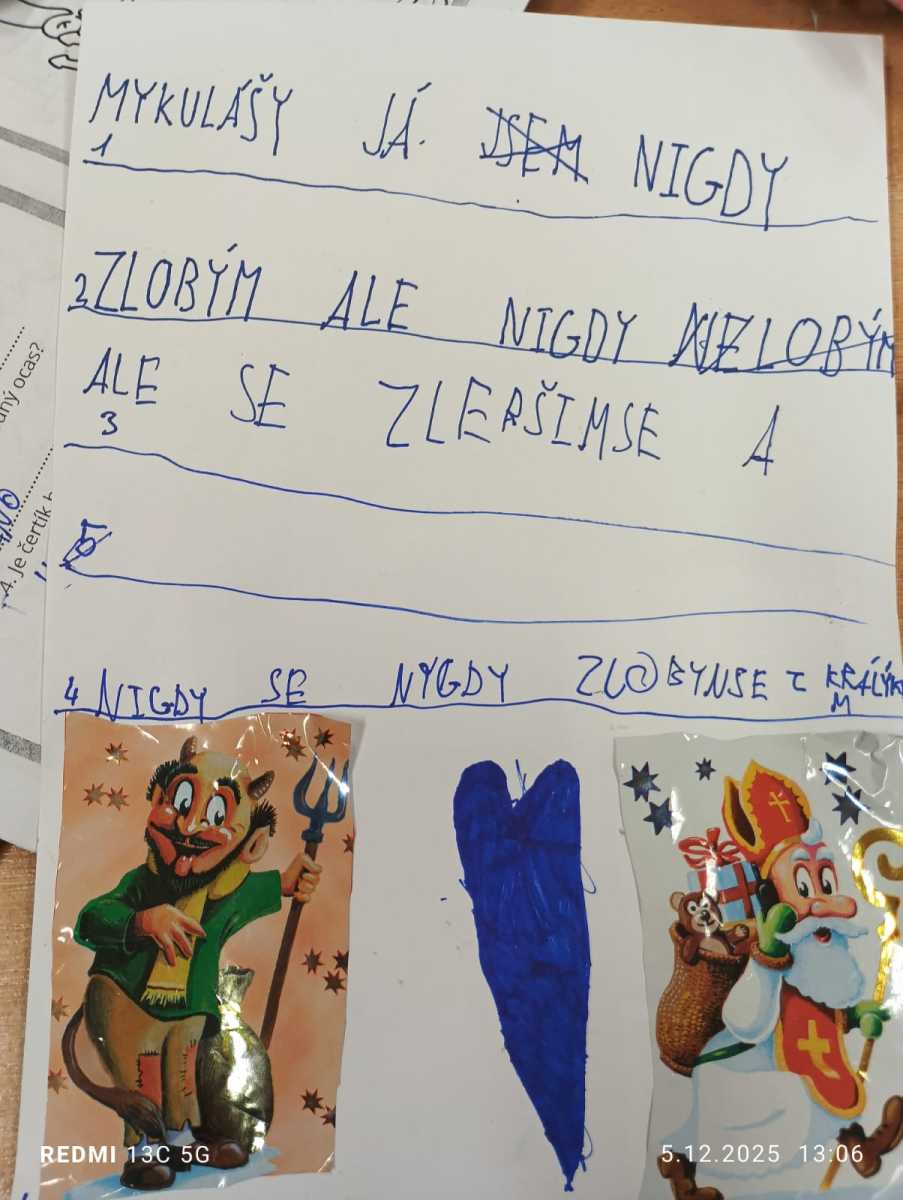 MYKULÁŠY JÁ JSEM NIGDY
1
2 ZLOBÝM ALE NIGDY NEZLOBÝM
ALE SE ZLERŠIMSE A
3
5
4 NIGDY SE NÝGDY ZLOBYNSE Z KRÁLÝK
M
dný ocas?
4. Je čertík
REDMI 13C 5G
5.12.2025 13:06